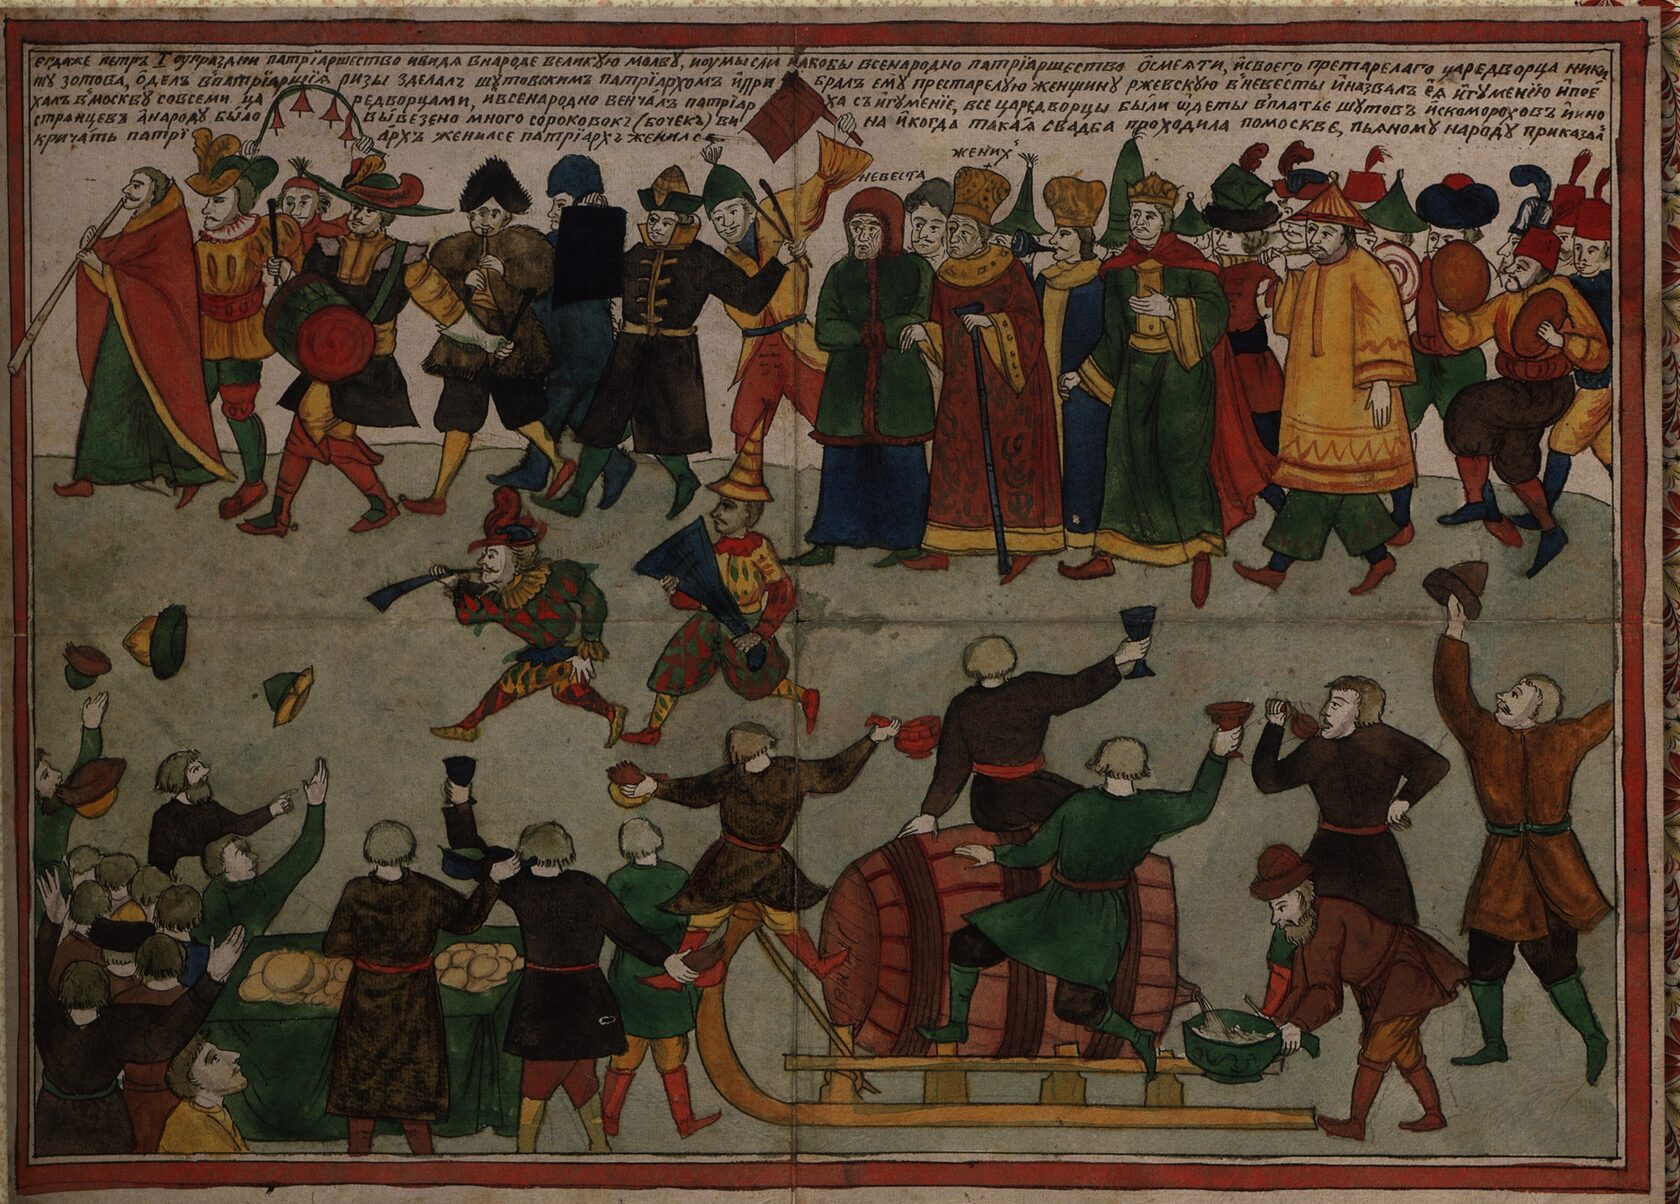 егдаже петръ I оупраздни патрїаршество ивидя внароде великую молву, иоумысли иакобы всенародно патрїаршество осмеяти, исвоего претарелаго царедворца ники
ту зотова, одел впатрїаршїя ризы зделалъ шутовскимъ патрїархомъ ипри бралъ ему престарелую женщину ржевскую вневесты иназвалъ ея игуменїю ипое
халъ вмоскву совсеми ца редворцами, ивсенародно венчалъ патрїар ха съ игуменїе, все царедворцы были одеты вплатье шутовъ искомороховъ иино
странцевъ анароду было вывезено много сороковокъ (бочекъ) ви на никогда такая свадба проходила помоскве, пьяному народу приказал
кричать патрї архъ женилсе патрїархъ женилсе
женихъ
невеста
вино